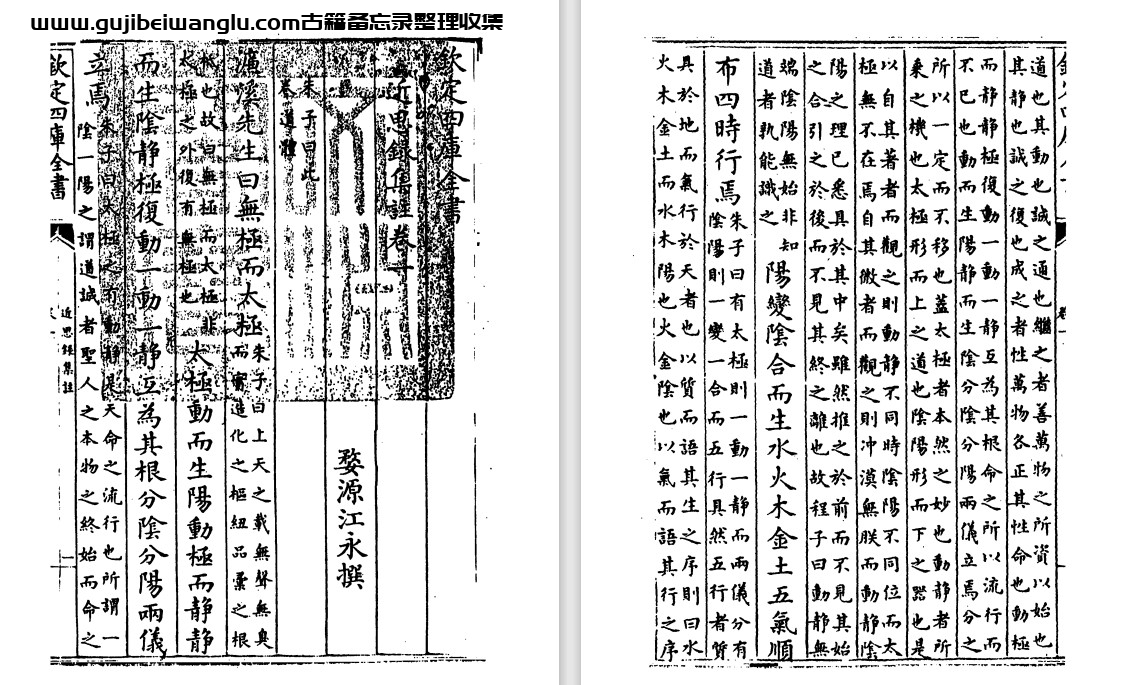 www.gujibeiwanglu.com古籍备忘录整理收集
欽定四庫全書
近思錄集註卷一
婺源江永撰
朱子曰此
卷道體
濂溪先生曰無極而太極
朱子曰上天之載無聲無臭
而實造化之樞紐品彙之根
柢也故曰無極而太極非
太極之外復有無極也
太極動而生陽動極而靜靜
而生陰靜極復動一動一靜互為其根分陰分陽兩儀
立焉
朱子曰太極之有動靜是天命之流行也所謂一
陰一陽之謂道誠者聖人之本物之終始而命之
欽定四庫全書
近思錄集註
道也其動也誠之通也繼之者善萬物之所資以始也
其靜也誠之復也成之者性萬物各正其性命也動極
而靜靜極復動一動一靜互為其根命之所以流行而
不已也動而生陽靜而生陰分陰分陽兩儀立焉分之
所以一定而不移也蓋太極者本然之妙也動靜者所
乘之機也太極形而上之道也陰陽形而下之器也是
以自其著者而觀之則動靜不同時陰陽不同位而太
極無不在焉自其微者而觀之則冲漠無朕而動靜陰
陽之理已悉具於其中矣雖然推之於前而不見其始
之合引之於後而不見其終之離也故程子曰動靜無
端陰陽無始非知
道者孰能識之
陽變陰合而生水火木金土五氣順
布四時行焉
朱子曰有太極則一動一靜而兩儀分有
陰陽則一變一合而五行具然五行者質
具於地而氣行於天者也以質而語其生之序則曰水
火木金土而水木陽也火金陰也以氣而語其行之序